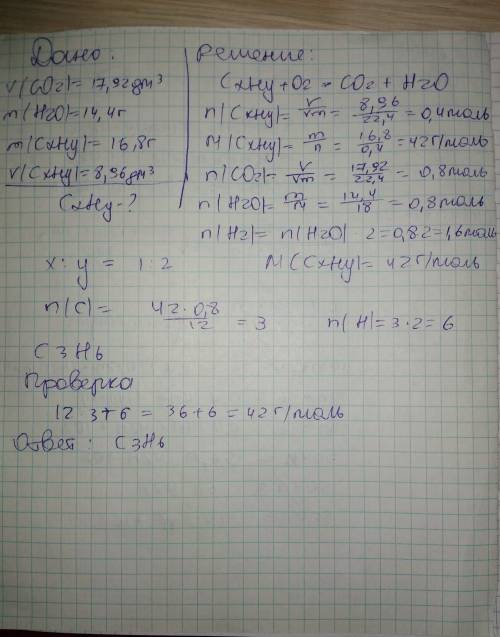 Дано:
V(CO2)=17,92дм³
m(H2O)=14,4г
m(CxHy)=16,8г
V(CxHy)=8,96дм³
CxHy-?
Решение:
CxHy+O2=CO2+H2O
n(CxHy)=V/Vm=8,96/22,4=0,4моль
M(CxHy)=m/n=16,8/0,4=42г/моль
n(CO2)=V/Vm=17,92/22,4=0,8моль
n(H2O)=m/M=14,4/18=0,8моль
n(H2)=n(H2O)·2=0,8·2=1,6моль
x:y=1:2 M(CxHy)=42г/моль
n(C)=42·0,8/12=3 n(H)=3·2=6
C3H6
Проверка
12·3+6=36+6=42г/моль
Ответ: C3H6